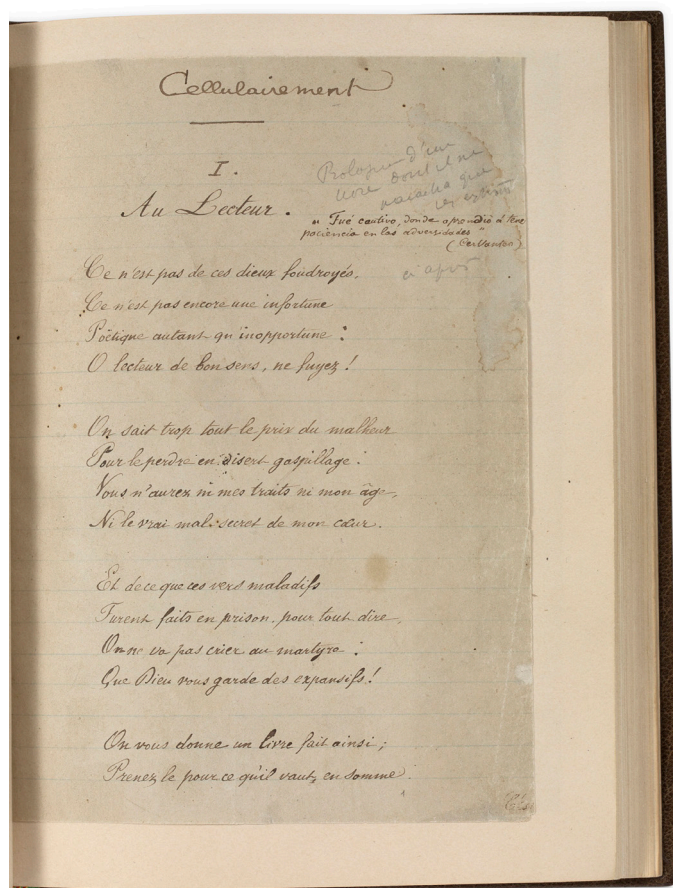 Cellulairement
I.
Prologue d'un
livre dont il ne
paraîtra que
les extraits
Au Lecteur.
"Fué cautivo, donde aprendió á tener
paciencia en las adversidades"
(Cervantes)
ci après
Ce n'est pas de ces dieux foudroyés,
Ce n'est pas encore une infortune
Poëtique autant qu'inopportune :
O lecteur de bon sens, ne fuyez !
On sait trop tout le prix du malheur
Pour le perdre en disert gaspillage.
Vous n'aurez ni mes traits ni mon âge,
Ni le vrai mal secret de mon cœur.
Et de ce que ces vers maladifs
Furent faits en prison, pour tout dire,
On ne va pas crier au martyre :
Que Dieu vous garde des expansifs !
On vous donne un livre fait ainsi ;
Prenez le pour ce qu'il vaut, en somme.